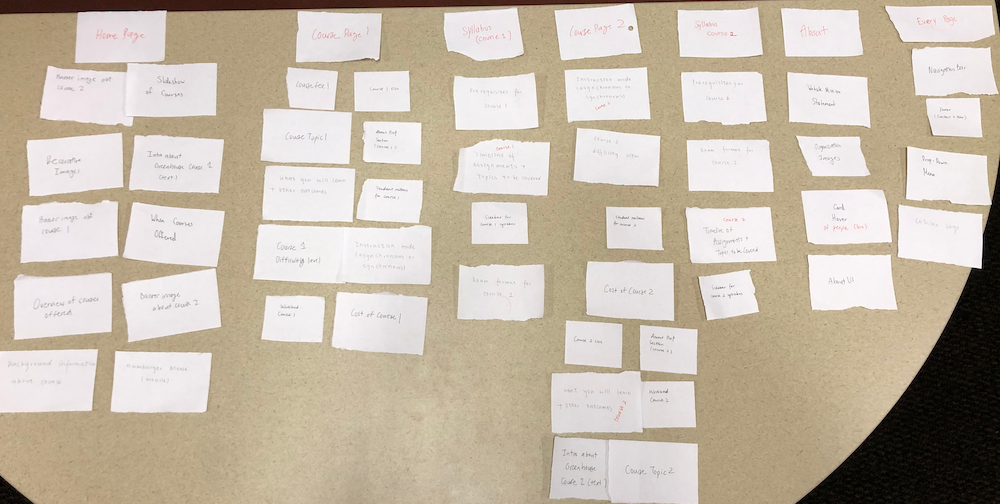 Home Page
Banner image out
course 2
Slideshow
of Courses
Decorative
Images
Intro about
Greenhouse Course 1
(text)
Banner image out
course 1
When Courses
Offered
Overview of courses
offered
Banner image
about course 2
Background information
about
Hamburger Menu
(mobile)
Course Page 1
Course Fee 1
Course 1
Course Topic 1
About Prof
Section
(course 1)
What you will learn
+ other outcomes
Student outcomes
for course 1
Course 1
Difficulty level
Instruction mode
(asynchronous or
synchronous)
Workload
Course 1
Cost of Course 1
Syllabus
(Course 1)
Prerequisites for
course 1
course 1
Timeline of
Assignments +
Topics to be covered
Calendar for
course 1 syllabus
Exam format for
course 1
Course Page 2
Instruction mode
(asynchronous or
synchronous)
course 2
Course 2
difficulty
Student outcomes
for course 2
Cost of Course 2
Course 2
About Prof
Section
(course 2)
What you will learn
+ other outcomes
course 2
Workload
Course 2
Intro about
Greenhouse
Course 2 (text)
Course Topic 2
Syllabus
Course 2
Prerequisites for
course 2
Exam format for
course 2
course 2
Timeline of
Assignments +
Topics to be Covered
Calendar for
course 2 syllabus
About
Statement
Organization
Images
Card
Hover
of people (bio)
About Us
Every Page
Navigation Bar
Footer
Drop-Down
Menu
logo